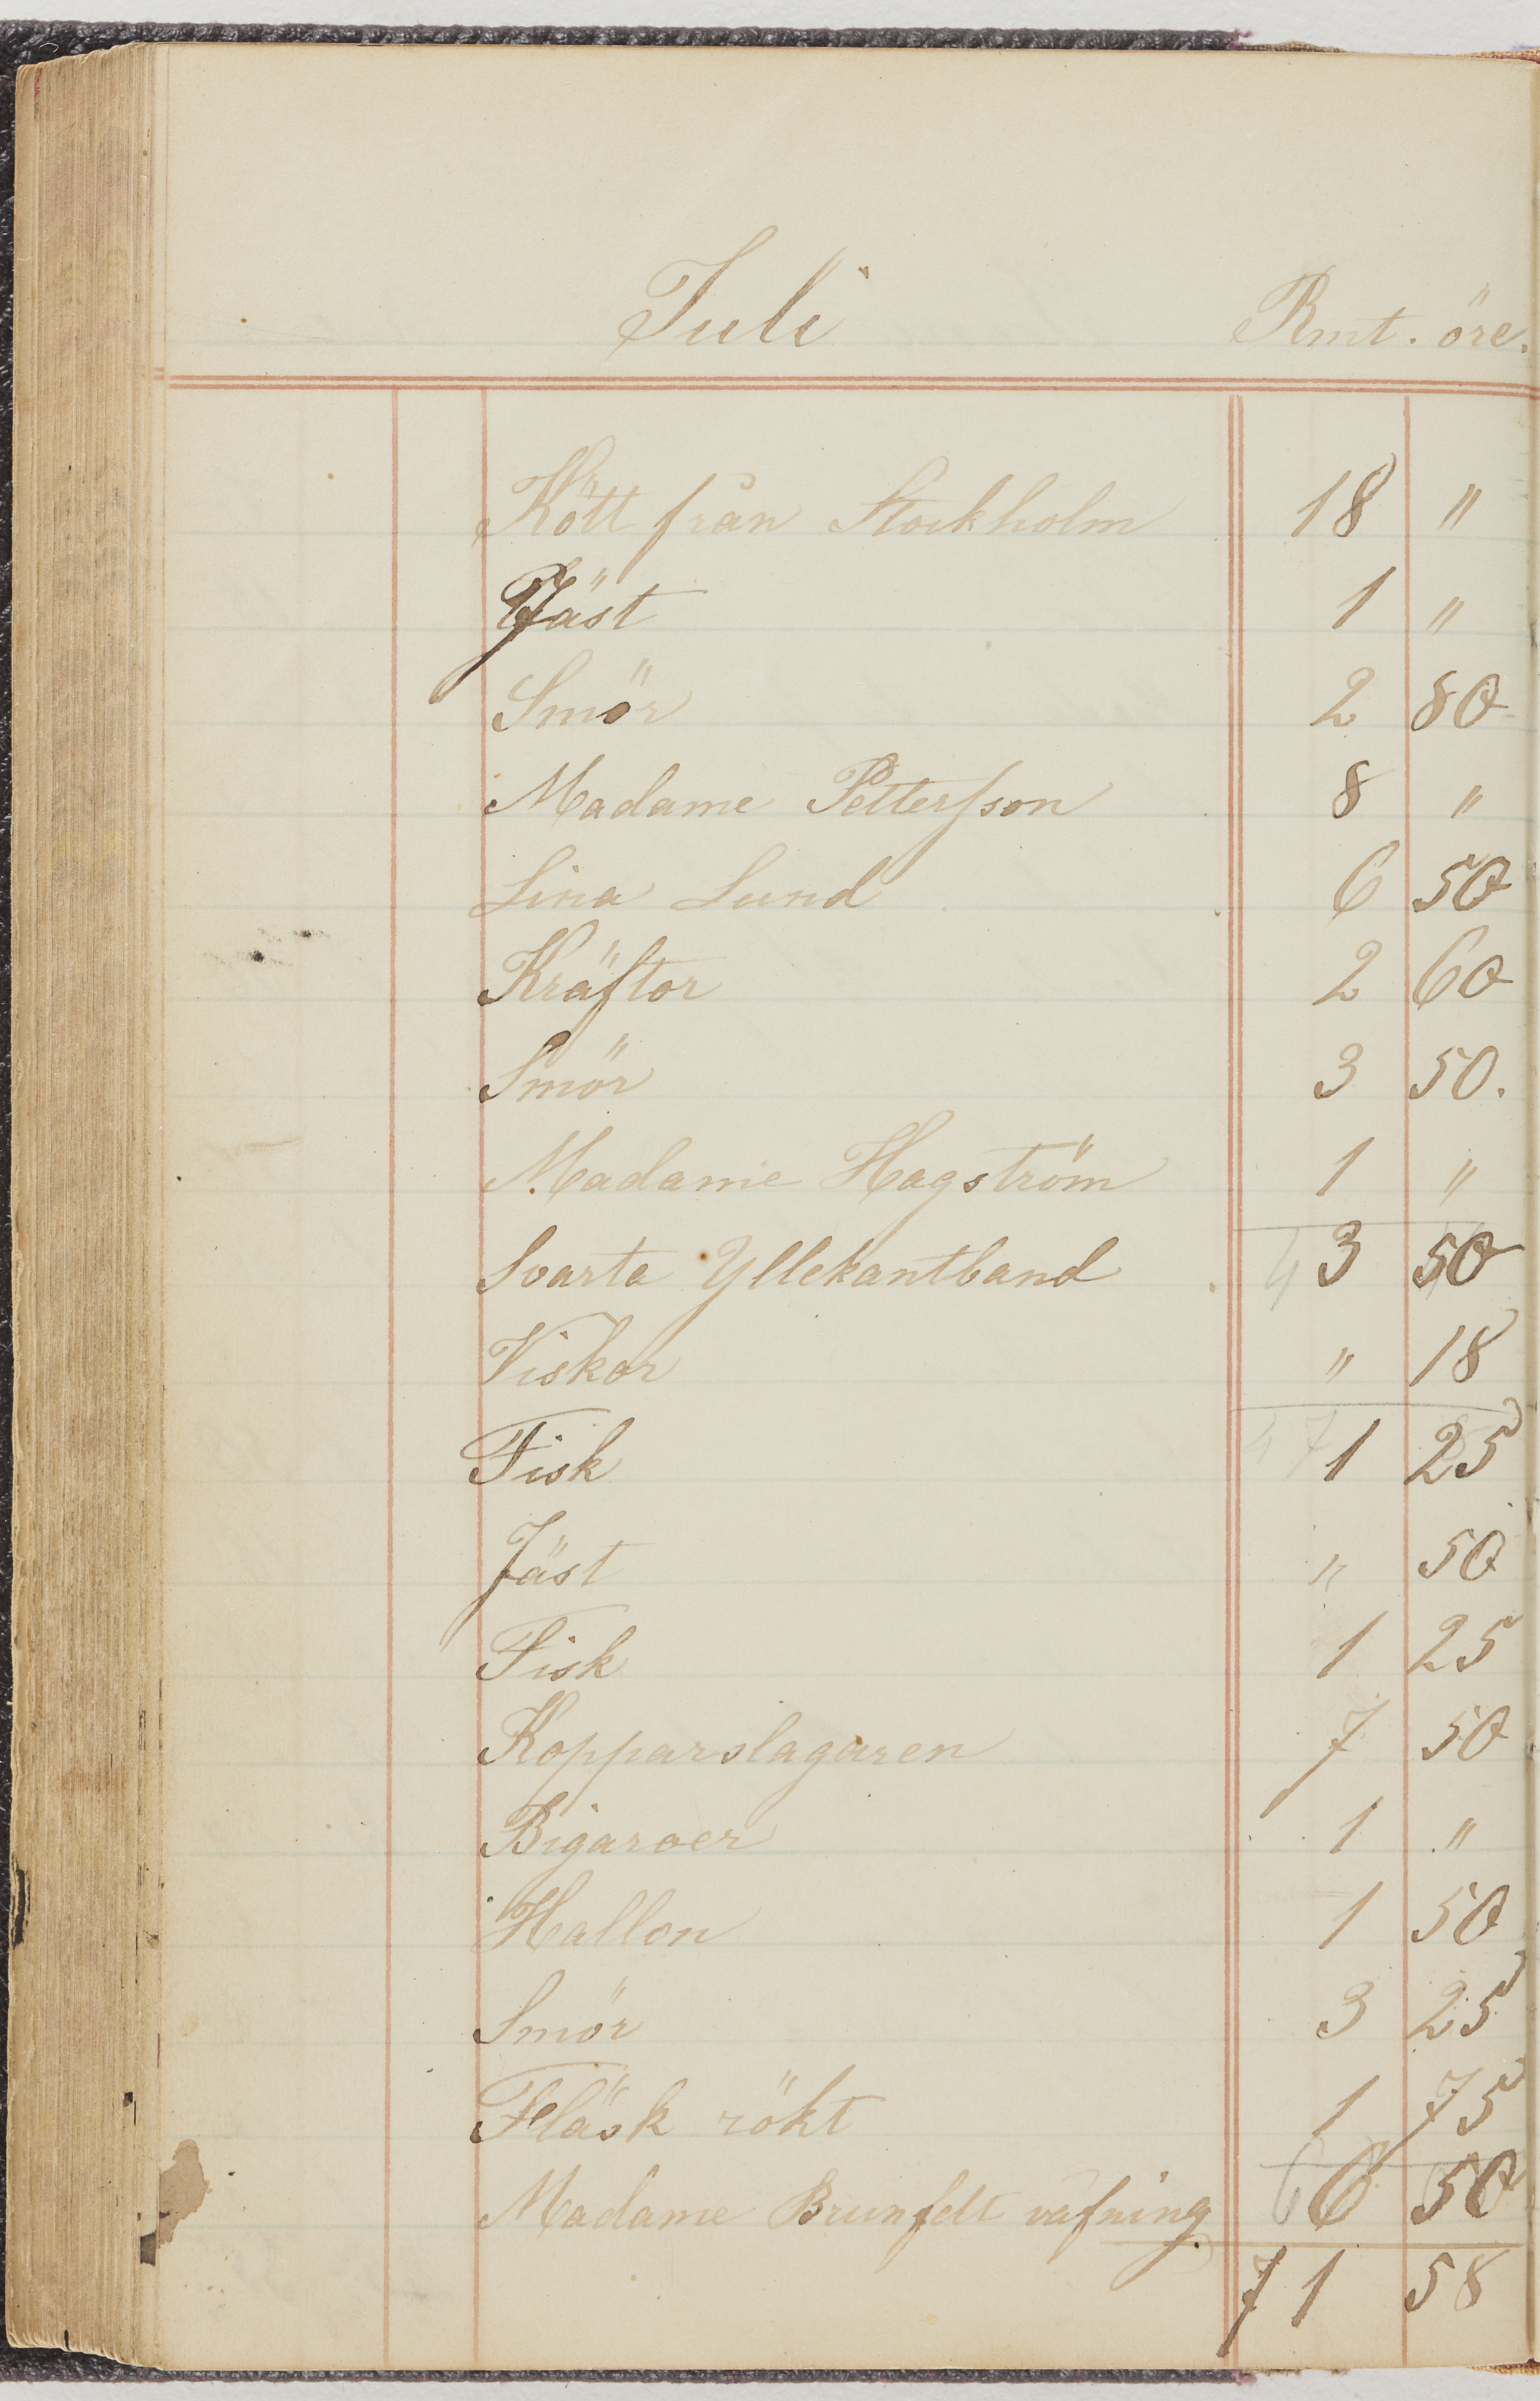 Juli Rmt. öre.
Kött från Stockholm 18 "
Jäst 1 "
Smör 2 80
Madame Pettersson 8 "
Lina Lund 6 50
Kräftor 2 60
Smör 3 50.
Madame Hagström 1 "
Svarta Yllekantband 3 50
Viskor " 18
Fisk 1 25
Jäst " 50
Fisk 1 25
Kopparslagaren 7 50
Bigaroer 1 "
Hallon 1 50
Smör 3 25
Fläsk rökt 1 75
Madame Brunfelt väfning 6 50
71 58